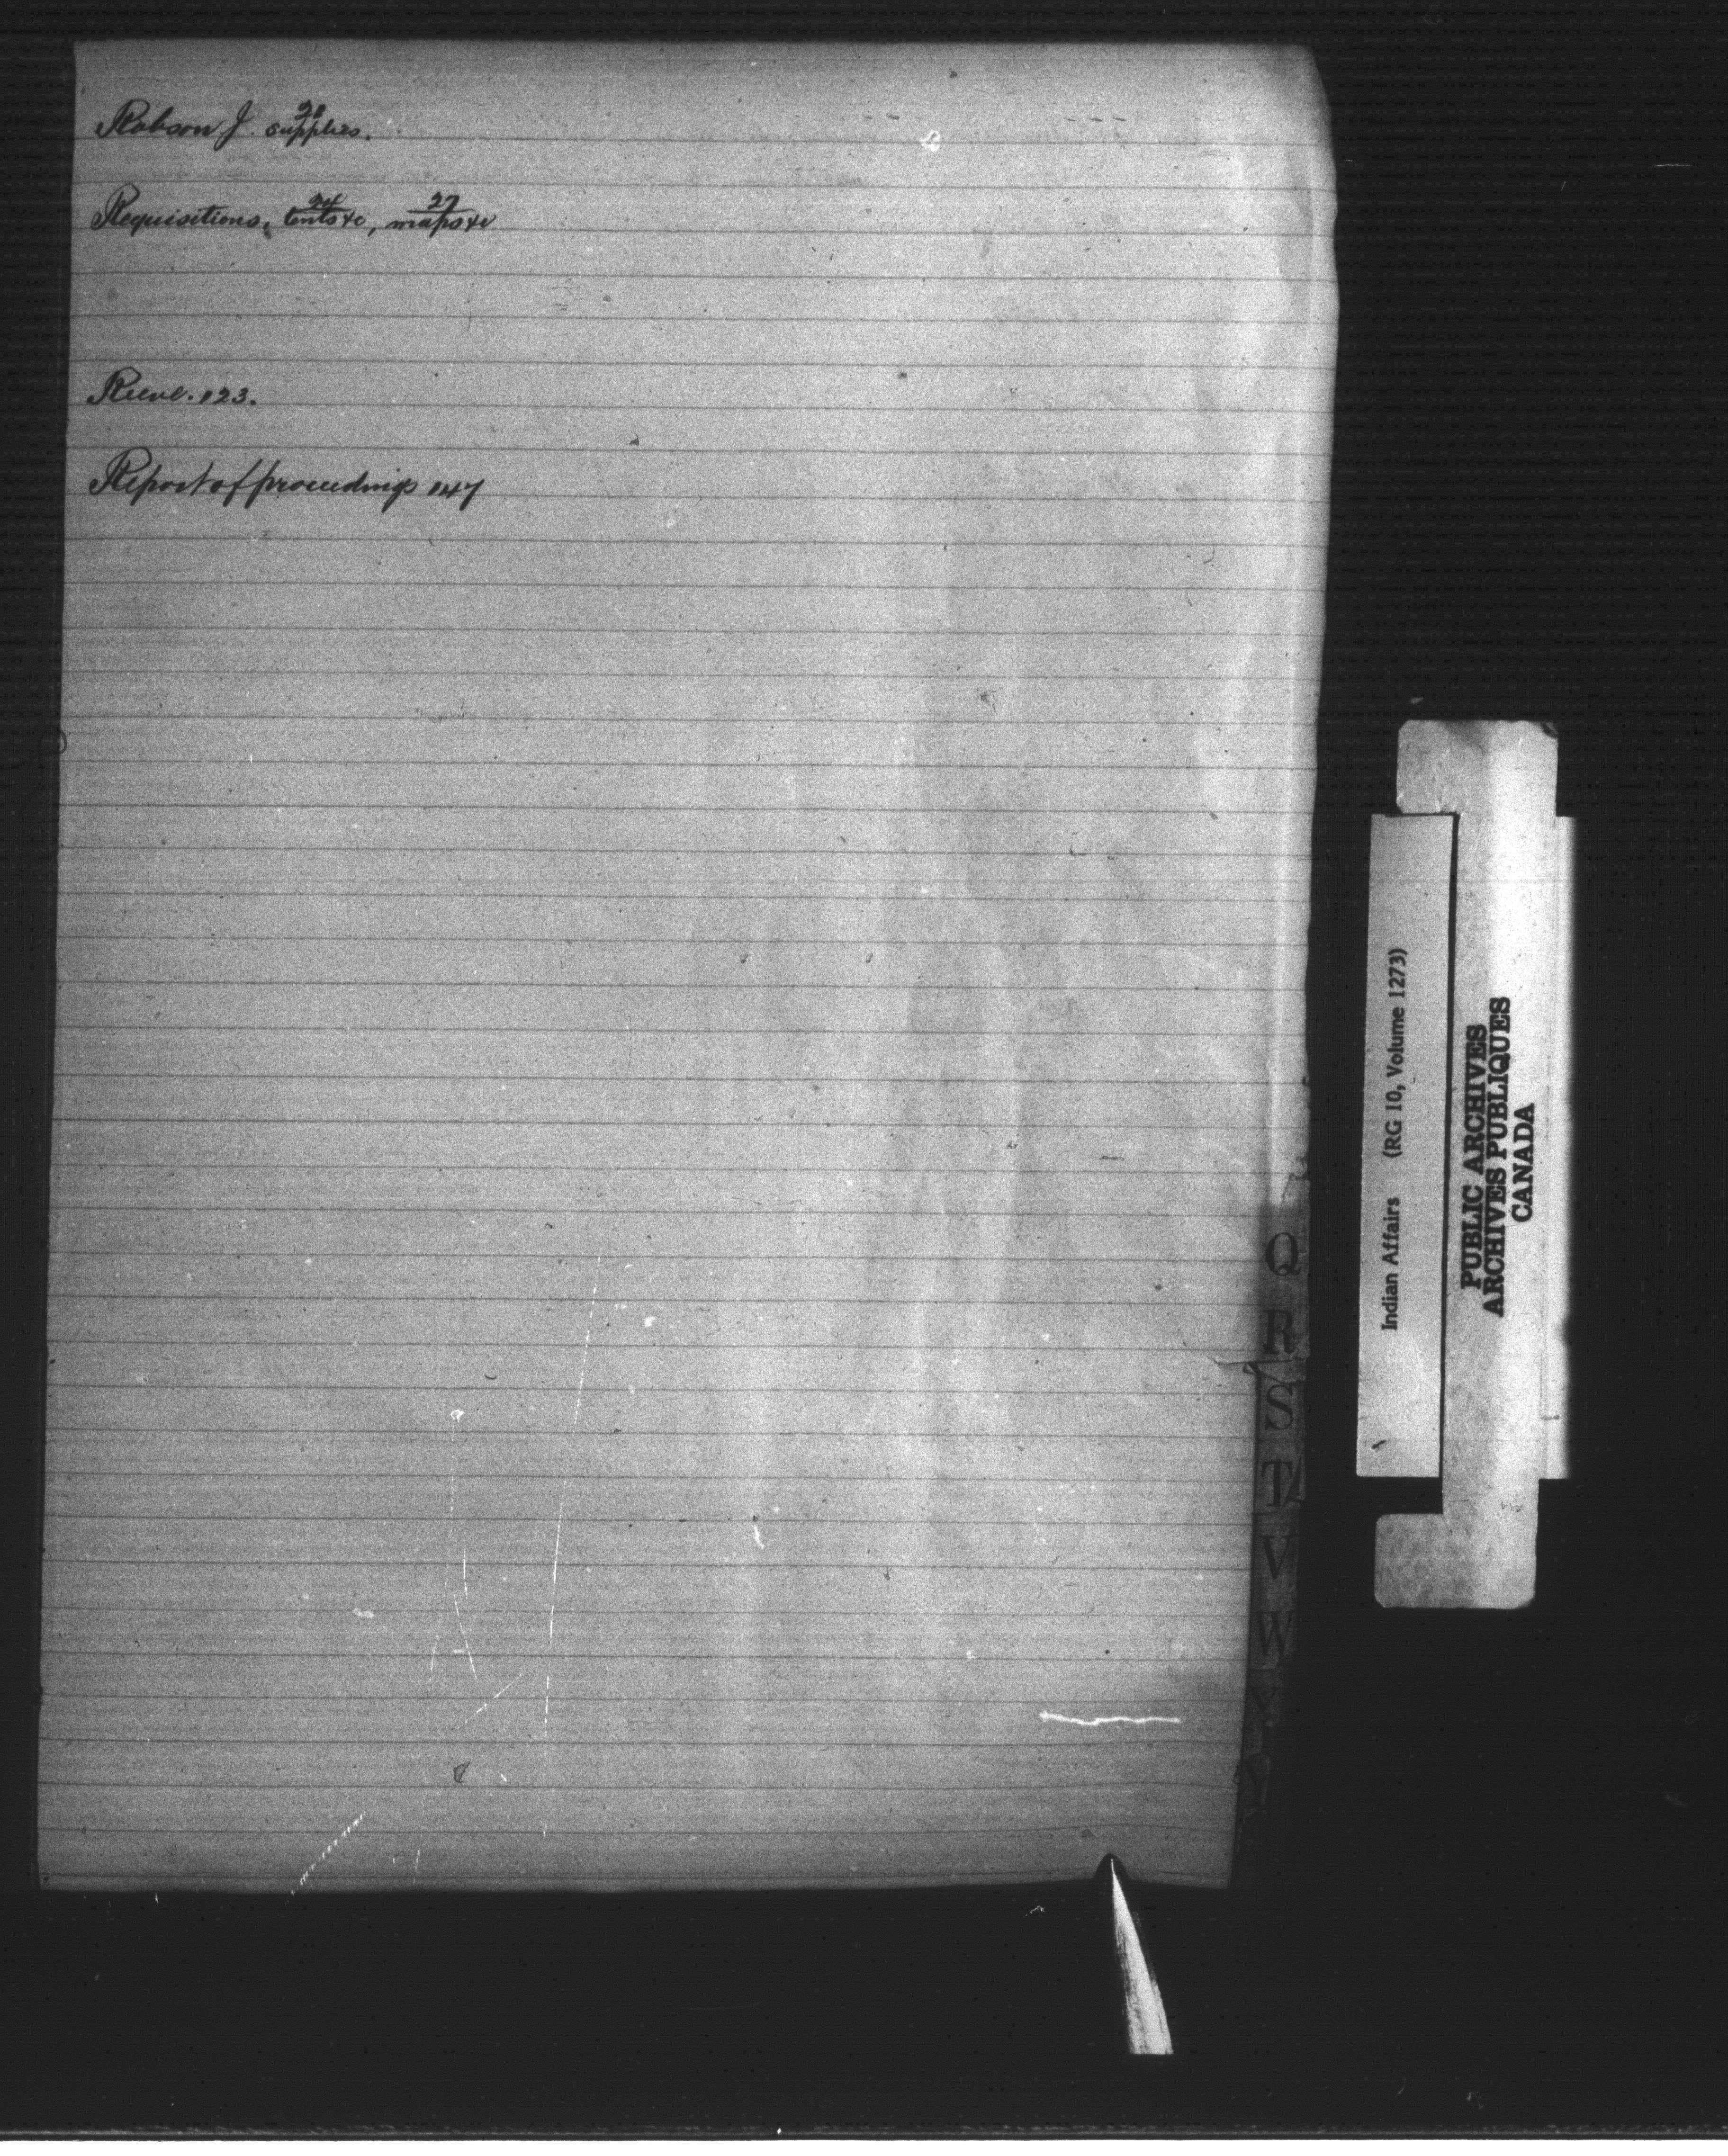 Robson J. supplies.
Requisitions, 24 tents &c, 27 maps &c
123.
Report of proceedings 147
Q
R
S
T
V
W
Y
Indian Affairs (RG 10, Volume 1273)
PUBLIC ARCHIVES
ARCHIVES PUBLIQUES
CANADA